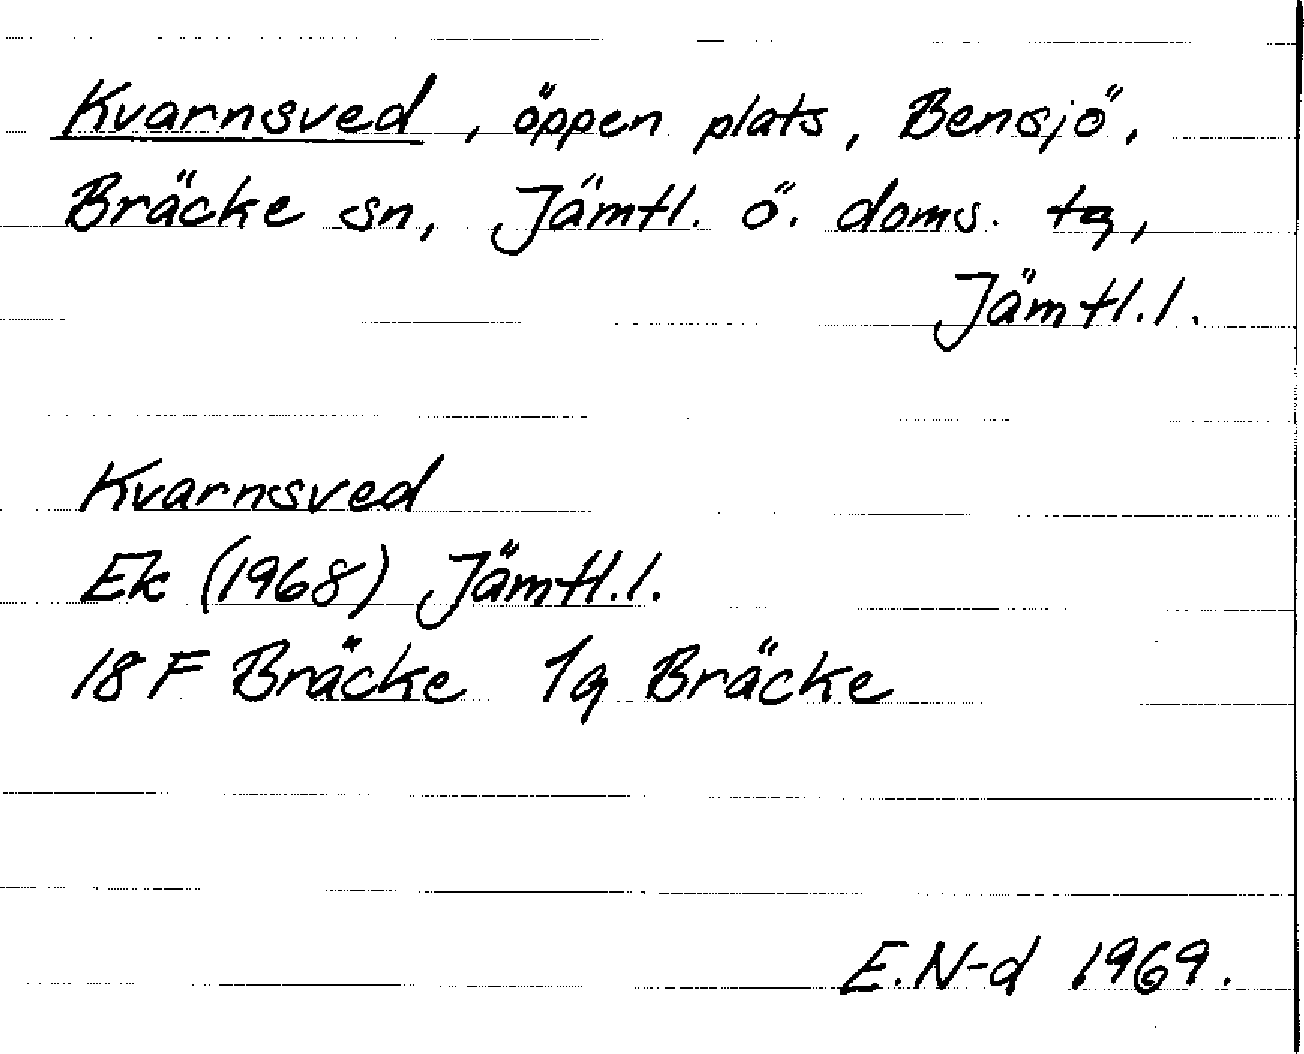 Kvarnsved, öppen plats, Bensjö,
Bräcke sn, Jämtl. ö. doms. tg,
Jämtl.l.
Kvarnsved
Ek (1968) Jämtl.l.
18 F Bräcke 1g Bräcke
E.N-d 1969.